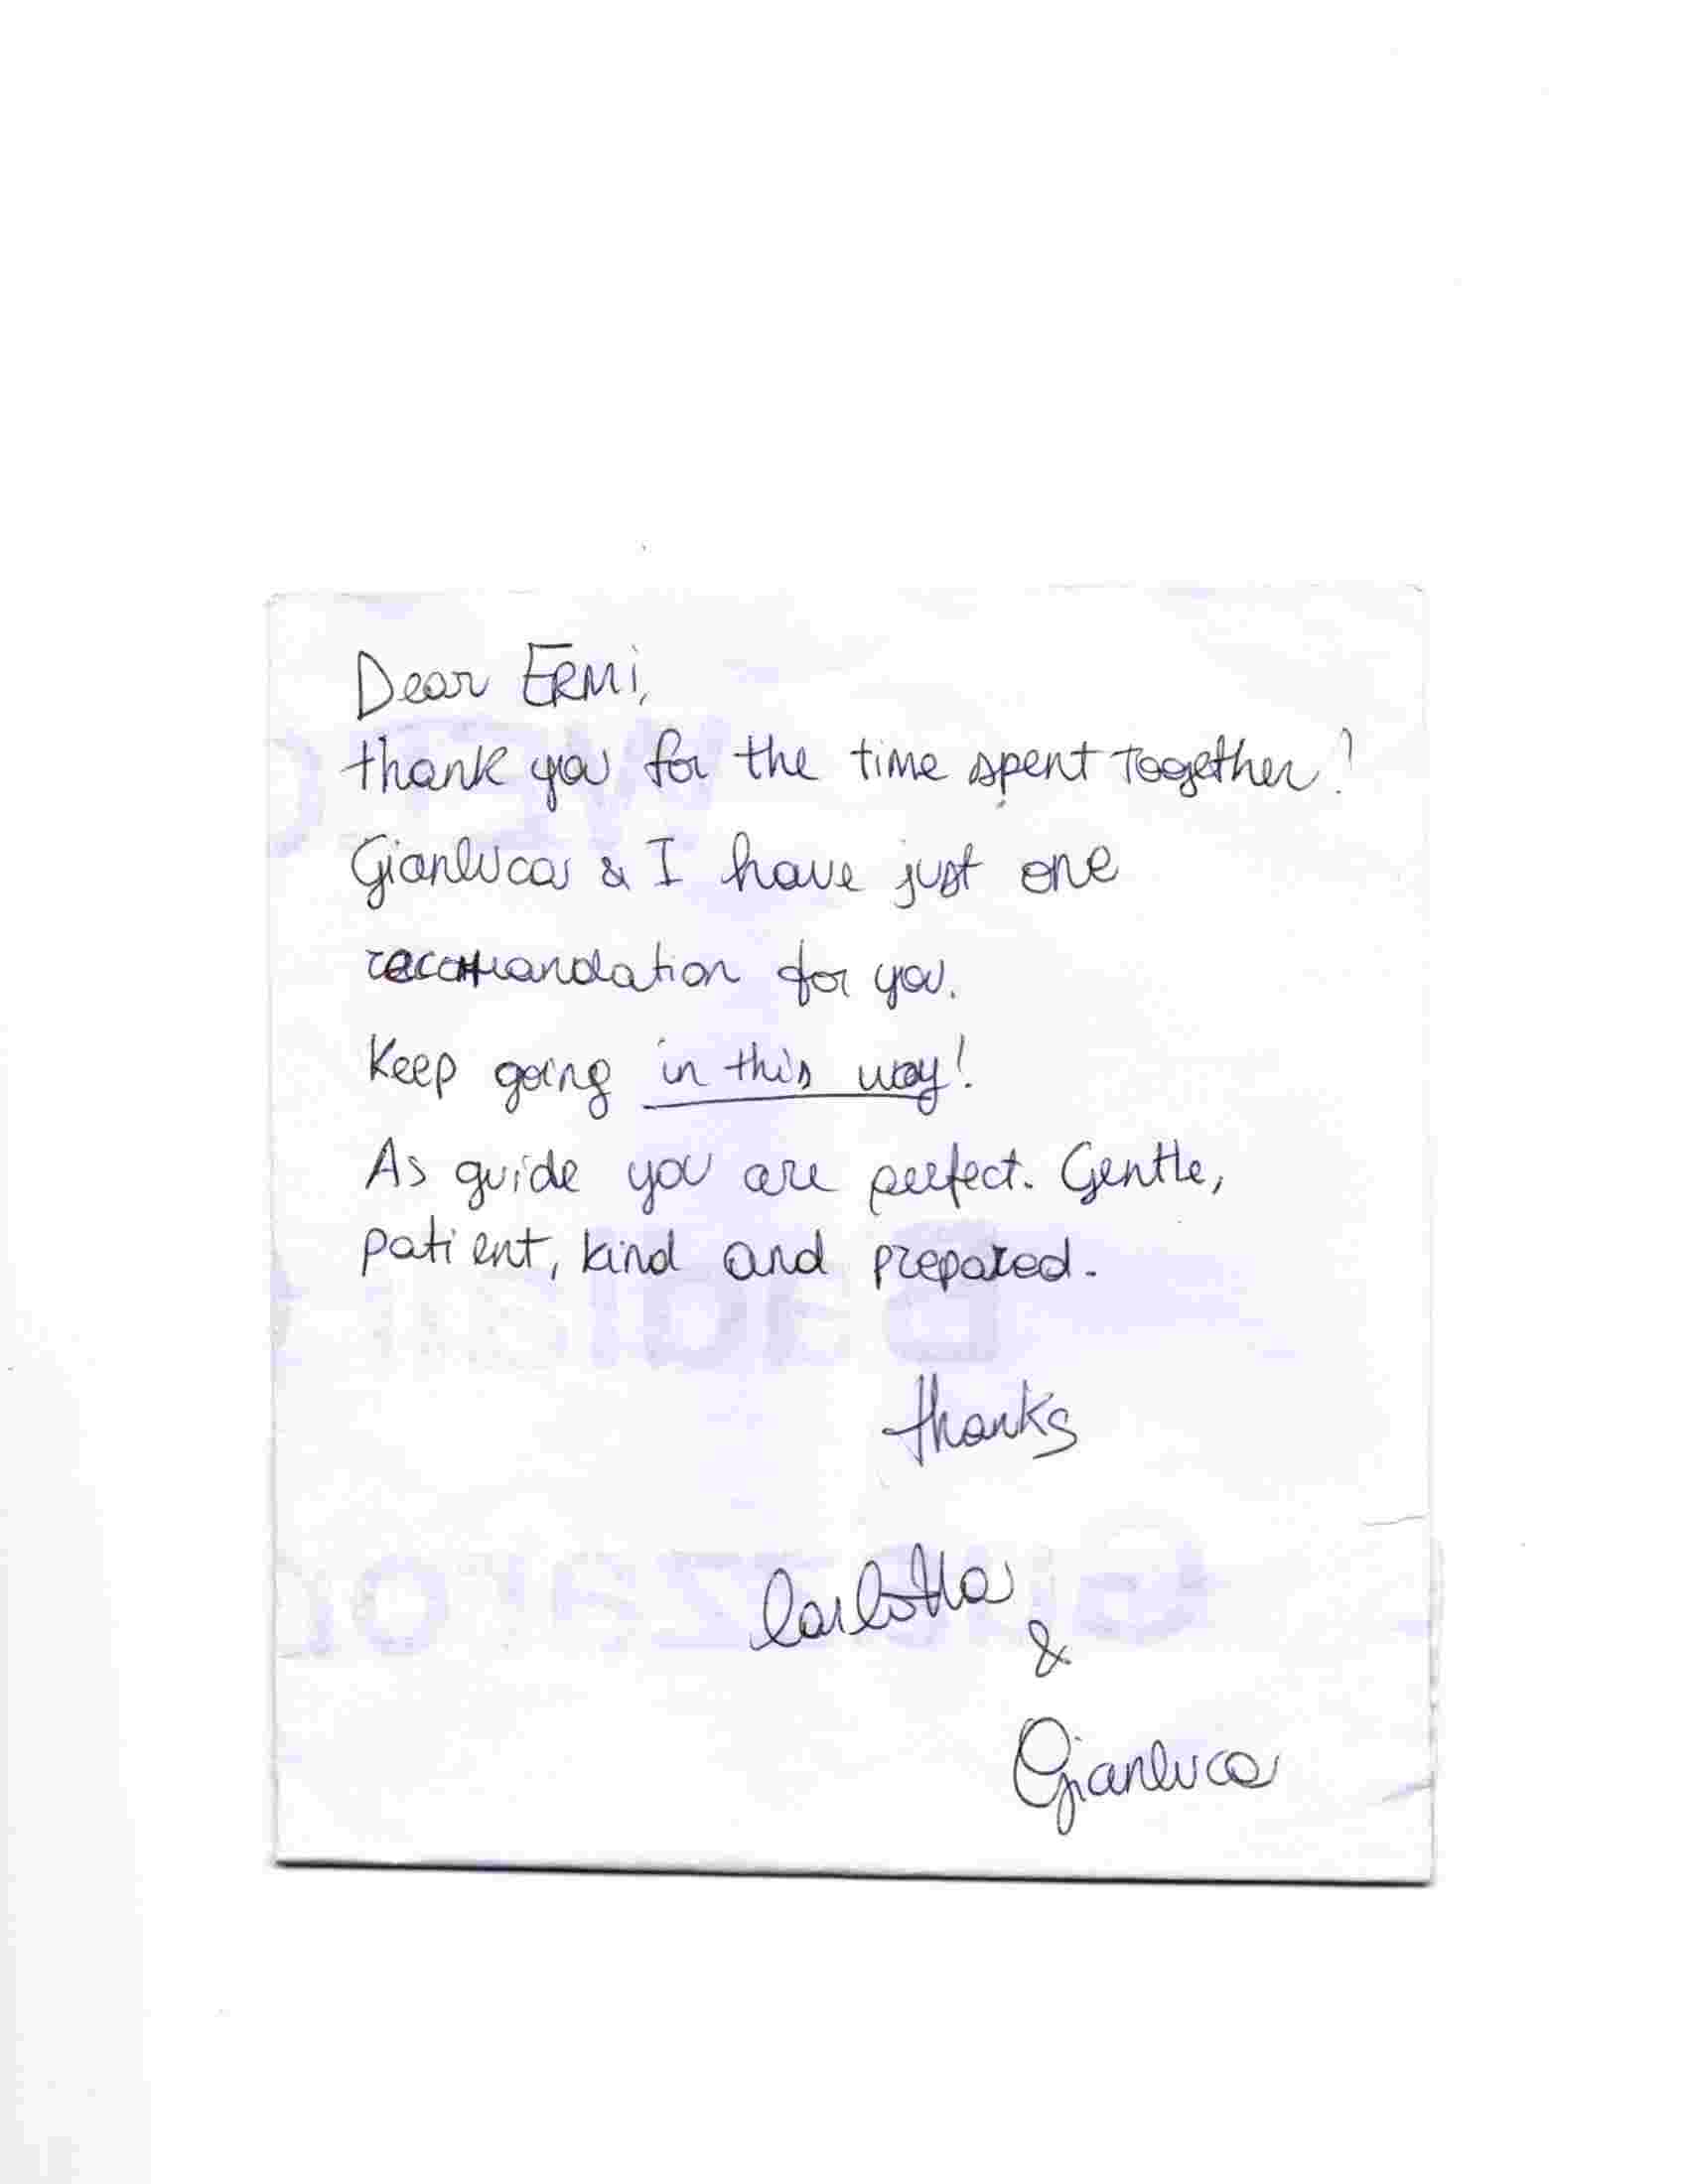 Dear ERMi,
thank you for the time spent Together!
Gianluca & I have just one
recommandation for you.
Keep going in this way!
As guide you are perfect. Gentle,
patient, kind and prepared.
thanks
Carlotta
&
Gianluca